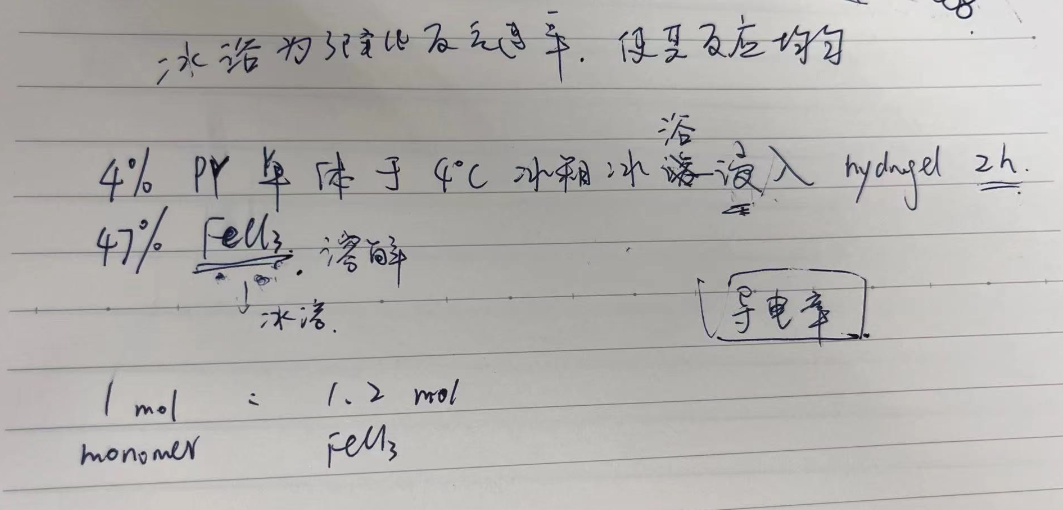 冰浴为了 化反应速率. 使其反应均匀
4% PY 单体于 4°C 冰箱冰浴浸入 hydrogel 2h.
47% FeCl3. 溶解
↓冰浴.
导电率
1 mol : 1.2 mol
monomer FeCl3